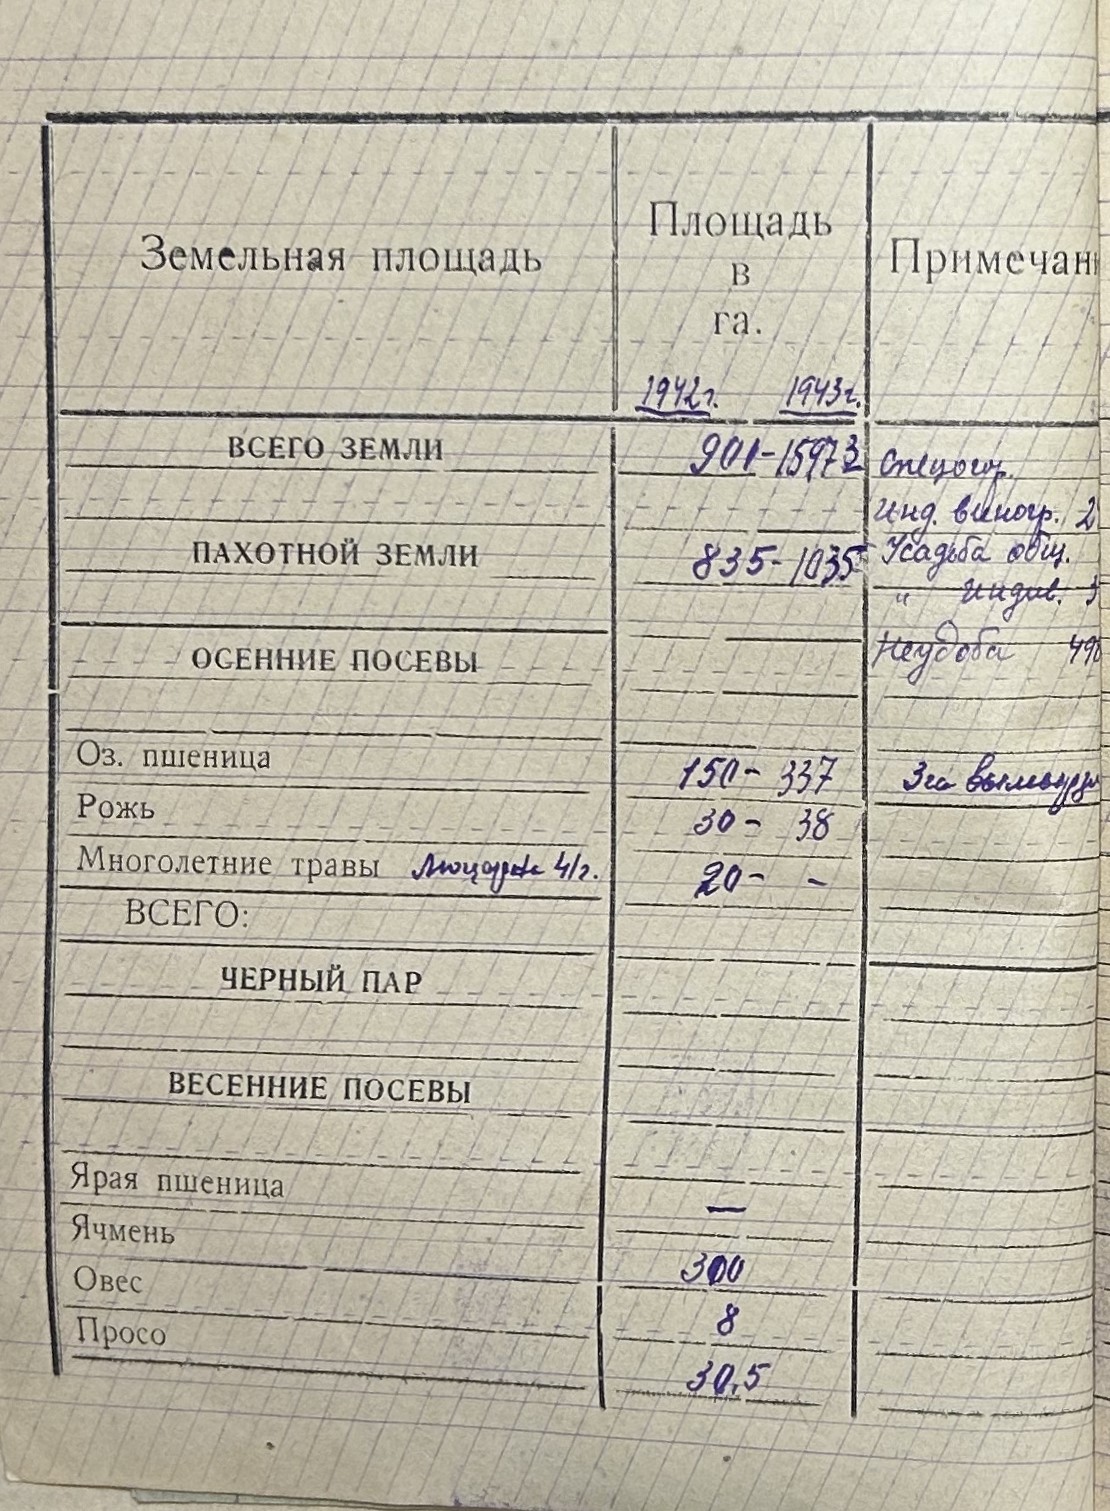 Земельная площадь
Площадь
в
га.
Примечан
1942г. 1943г.
ВСЕГО ЗЕМЛИ 901-15973
Инд. виногр. 2
ПАХОТНОЙ ЗЕМЛИ 835-1035 Усадьба общ.
" Индив.
Неудоба 490
ОСЕННИЕ ПОСЕВЫ
Оз. пшеница 150- 337
Рожь 30- 38
Многолетние травы Люцерна 4/г. 20- -
ВСЕГО:
ЧЕРНЫЙ ПАР
ВЕСЕННИЕ ПОСЕВЫ
Ярая пшеница —
Ячмень 300
Овес 8
Просо 30,5